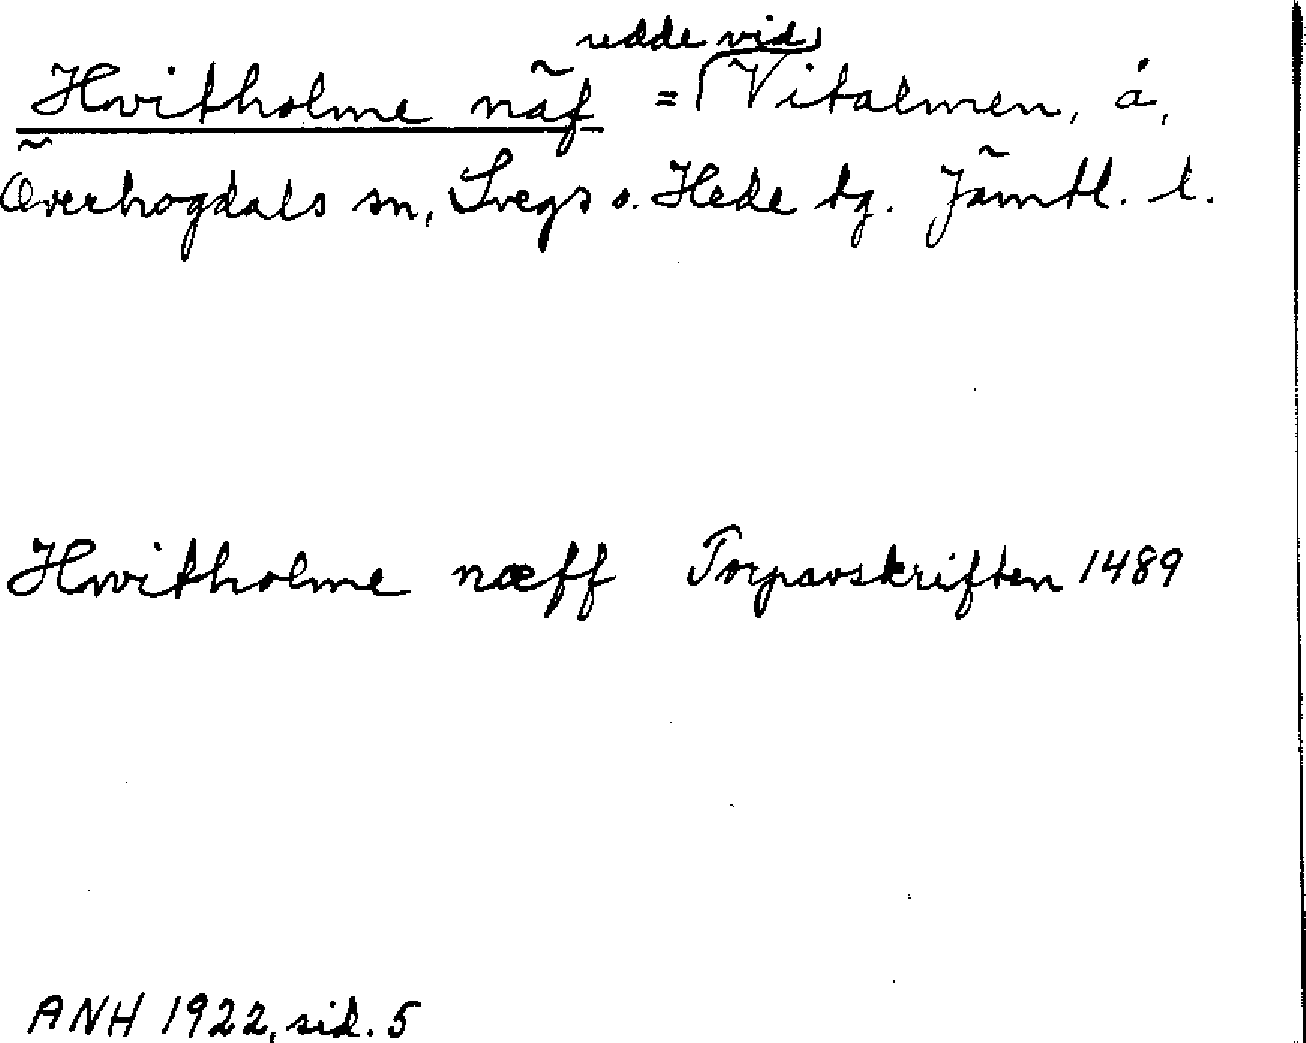 Hvitholme näf = redde vid Vitalmen, å,
Överhogdals sn, Svegs o. Hede tg. Jämtl. l.
Hwitholme næff Torpavskriften 1489
ANH 1922, sid. 5